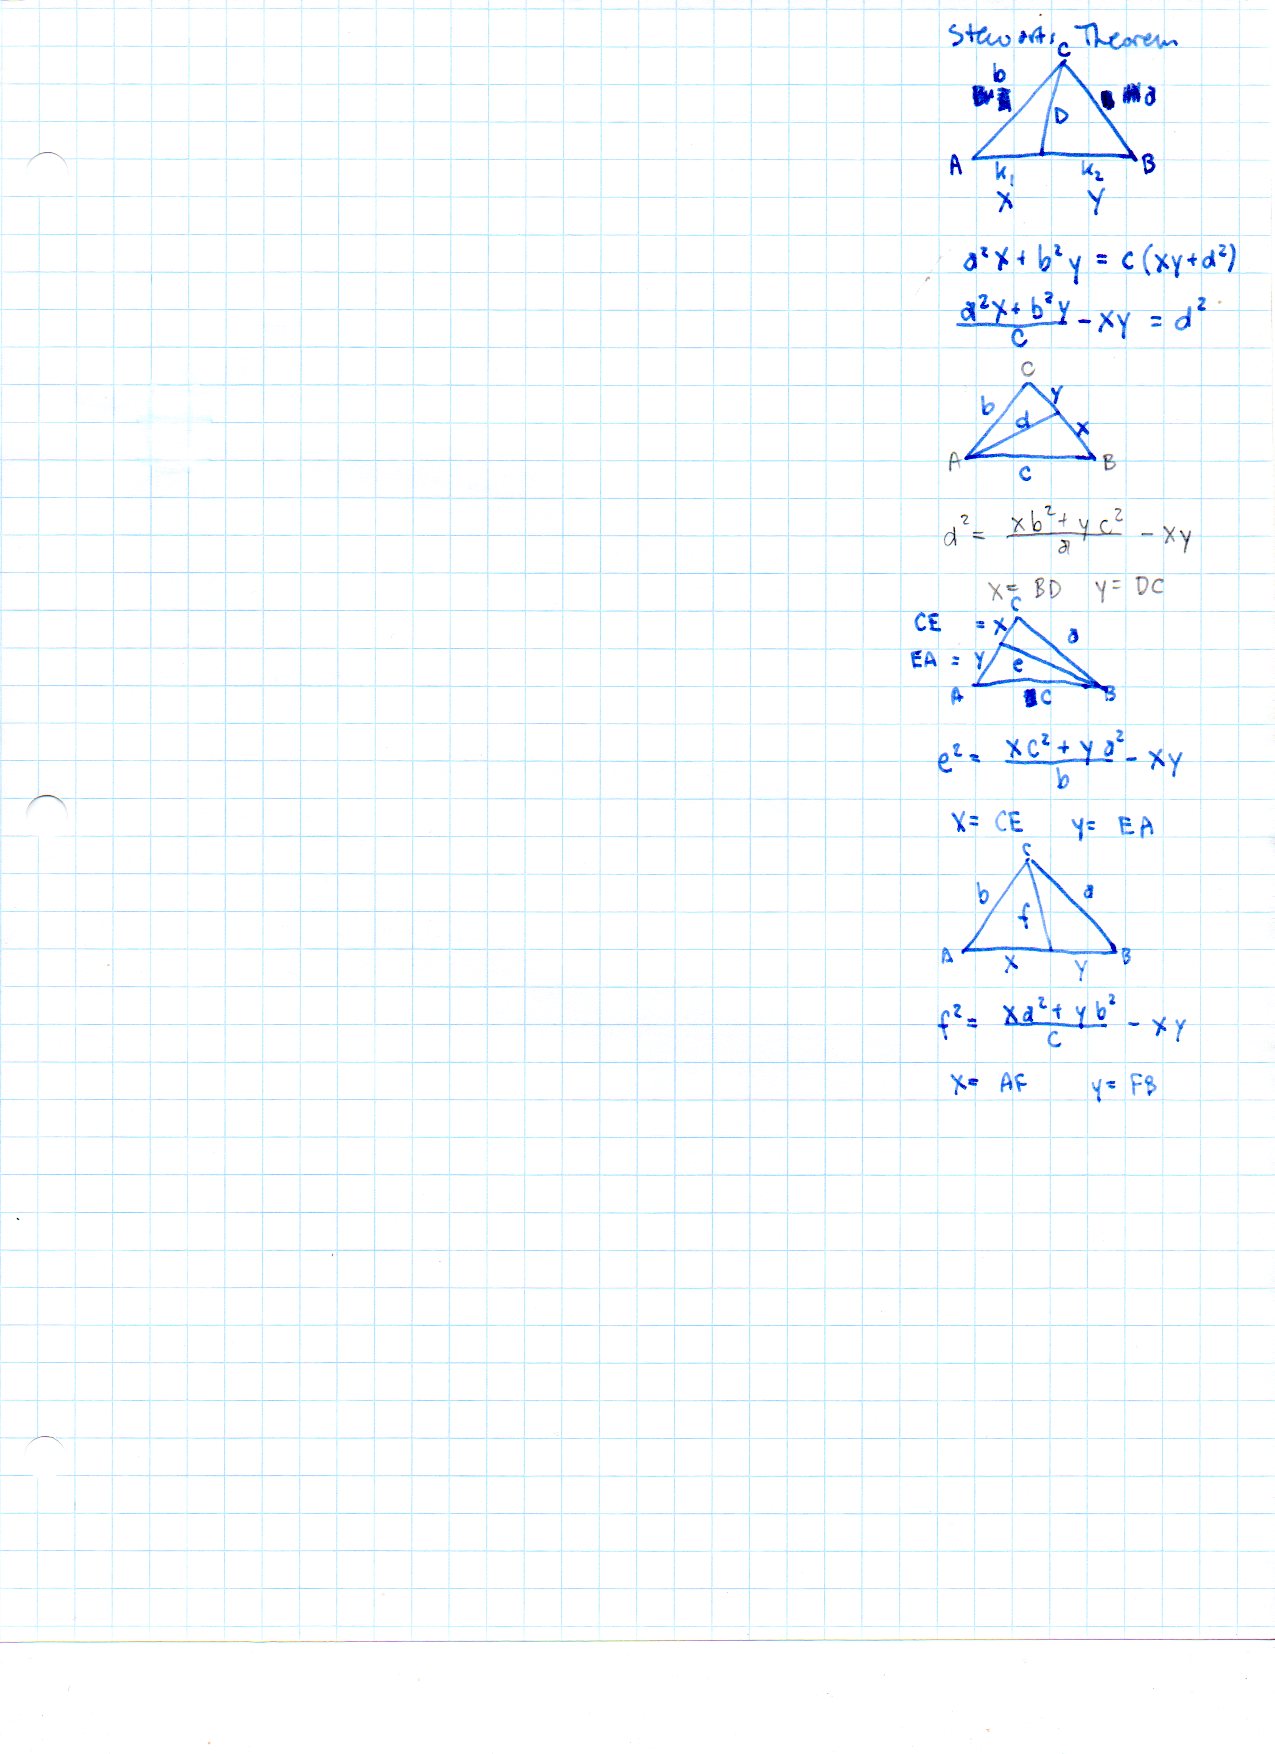 Stewarts Theorem
C
b
a
D
A
B
k₁
k₂
X
Y
a²x + b²y = c(xy+d²)
(a²x + b²y)/c - xy = d²
C
b
y
d
x
A
B
c
d² = (xb² + yc²)/a - xy
x = BD y = DC
C
CE = x
a
EA = y
e
A
C
B
e² = (xc² + ya²)/b - xy
x = CE y = EA
C
b
a
f
A
B
x
y
f² = (xa² + yb²)/c - xy
x = AF y = FB